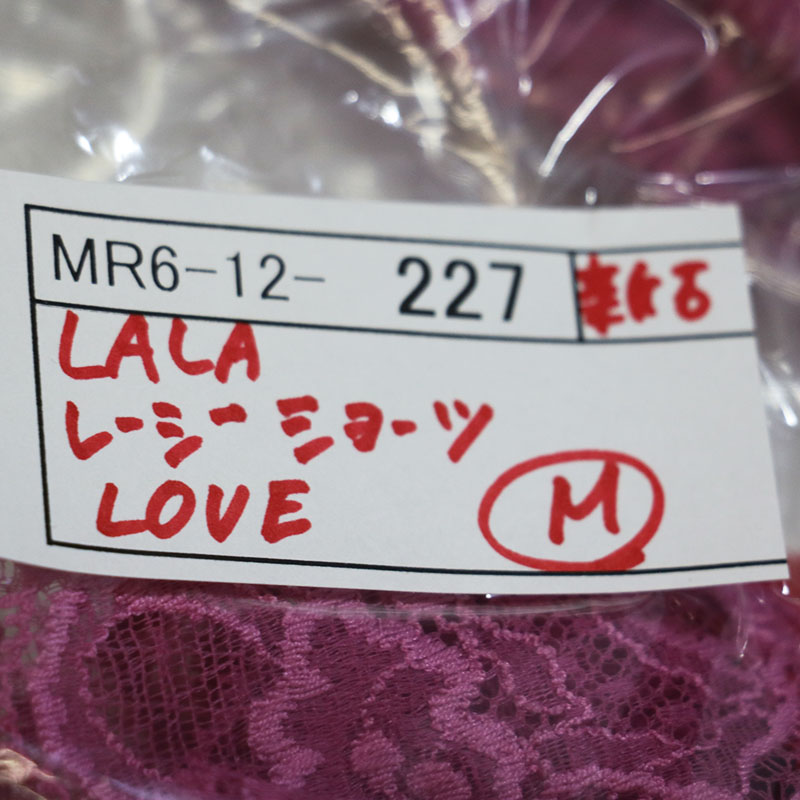 MR6-12- 227
LALA
レーシーショーツ
LOVE
M